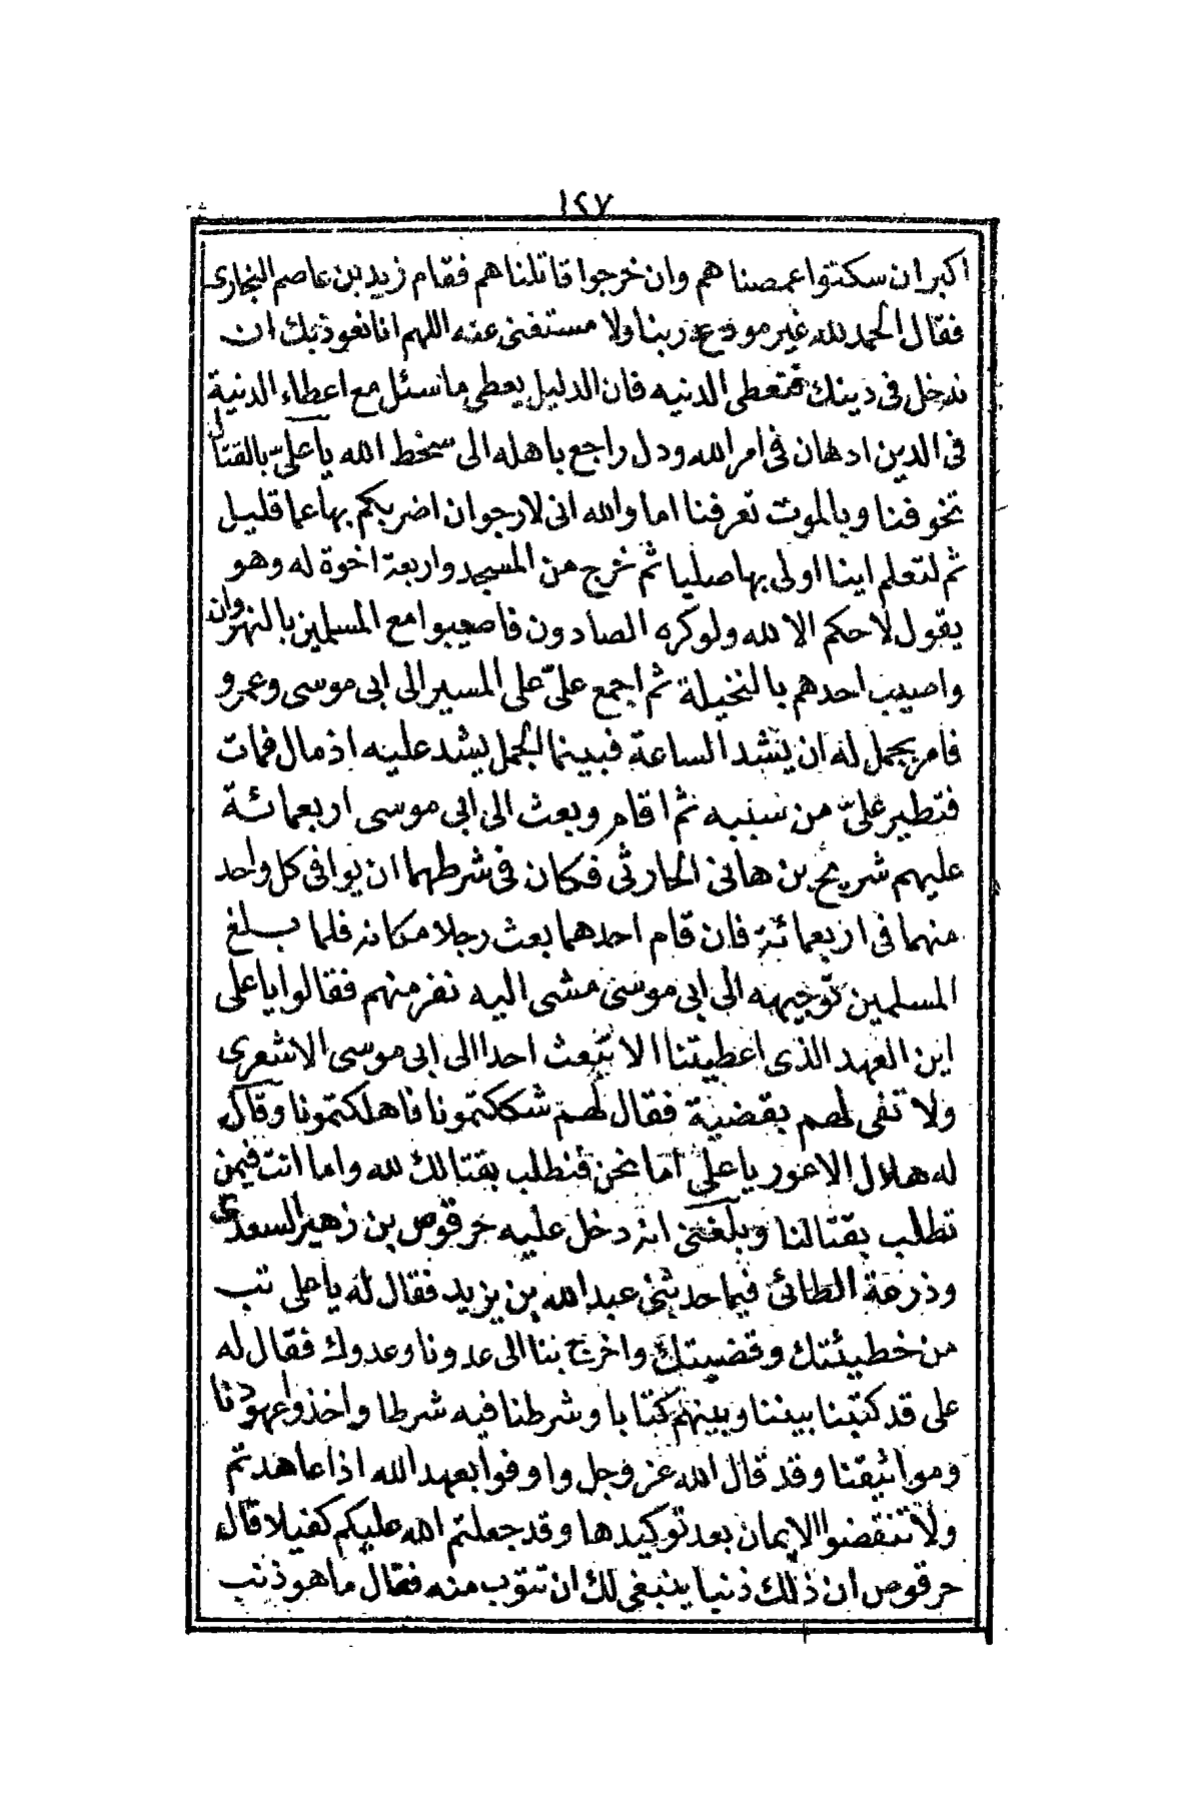 ١٤٧
اكبر ان سكتوا عمصناهم وان خرجوا قاتلناهم فقام زيد بن عاصم النجارى
فقال الحمد لله غير مودع ربنا ولا مستغنى عنه اللهم انا نعوذ بك ان
ندخل فى دينك فنعطى الدنيه فان الدليل يعطى ما سئل مع اعطاء الدنية
فى الدين ادهان فى امر الله ودل راجع باهله الى سخط الله يا علىّ بالقتال
تخوفنا وبالموت تعرفنا اما والله انى لارجو ان اضربكم بها عما قليل
ثم لتعلم اينا اولى بها صليا ثم خرج من المسجد واربعة اخوة له وهو
يقول لا حكم الا لله ولو كره الصادون فاصيبوا مع المسلمين بالنهروان
واصيب احدهم بالنخيلة ثم اجمع علىّ على المسير الى ابى موسى وعمرو
فامر بجمل له ان يشد الساعة فبينما الجمل يشد عليه اذ مال فمات
فتطير علىّ من سنبه ثم اقام وبعث الى ابى موسى اربعمائة
عليهم شريح بن هانئ الحارثى فكان فى شرطهما ان يوافى كل واحد
منهما فى اربعمائة فان قام احدهما بعث رجلا مكانه فلما بلغ
المسلمين توجيهه الى ابى موسى مشى اليه نفر منهم فقالوا يا على
اين العهد الذى اعطيتنا الا تبعث احدا الى ابى موسى الاشعرى
ولا تفى لهم بقضية فقال لهم شككتمونا فاهلكتمونا وقال
له هلال الاعور يا على اما نحن فنطلب بقتالك لله واما انت فيمن
تطلب بقتالنا وبلغنى انه دخل عليه حرقوص بن زهير السعدى
وذرعة الطائى فيما حدثنى عبد الله بن يزيد فقال له يا على تب
من خطيئتك وقضيتك واخرج بنا الى عدونا وعدوك فقال له
على قد كتبنا بيننا وبينهم كتابا وشرطنا فيه شرطا واخذوا عهودنا
ومواثيقنا وقد قال الله عز وجل واوفوا بعهد الله اذا عاهدتم
ولا تنقضوا الايمان بعد توكيدها وقد جعلتم الله عليكم كفيلا قال
حرقوص ان ذلك ذنبا ينبغى لك ان تتوب منه فقال ما هو ذنب